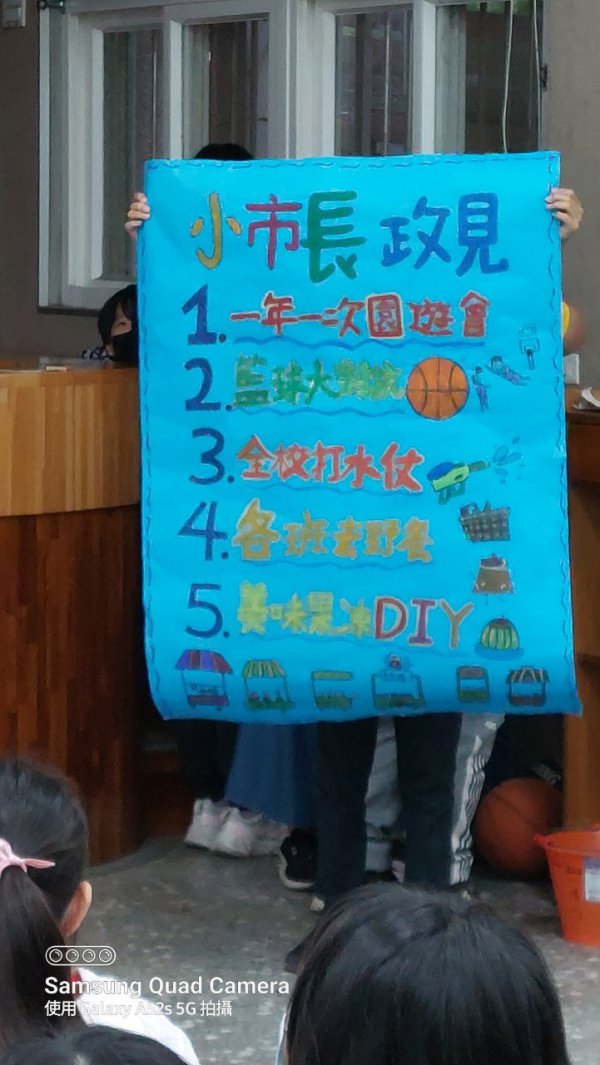 小市長 政見
1. 一年一次園遊會
2. 籃球大對抗
3. 全校打水仗
4. 各班去野餐
5. 美味果冰DIY
Samsung Quad Camera
使用 Galaxy A52s 5G 拍攝